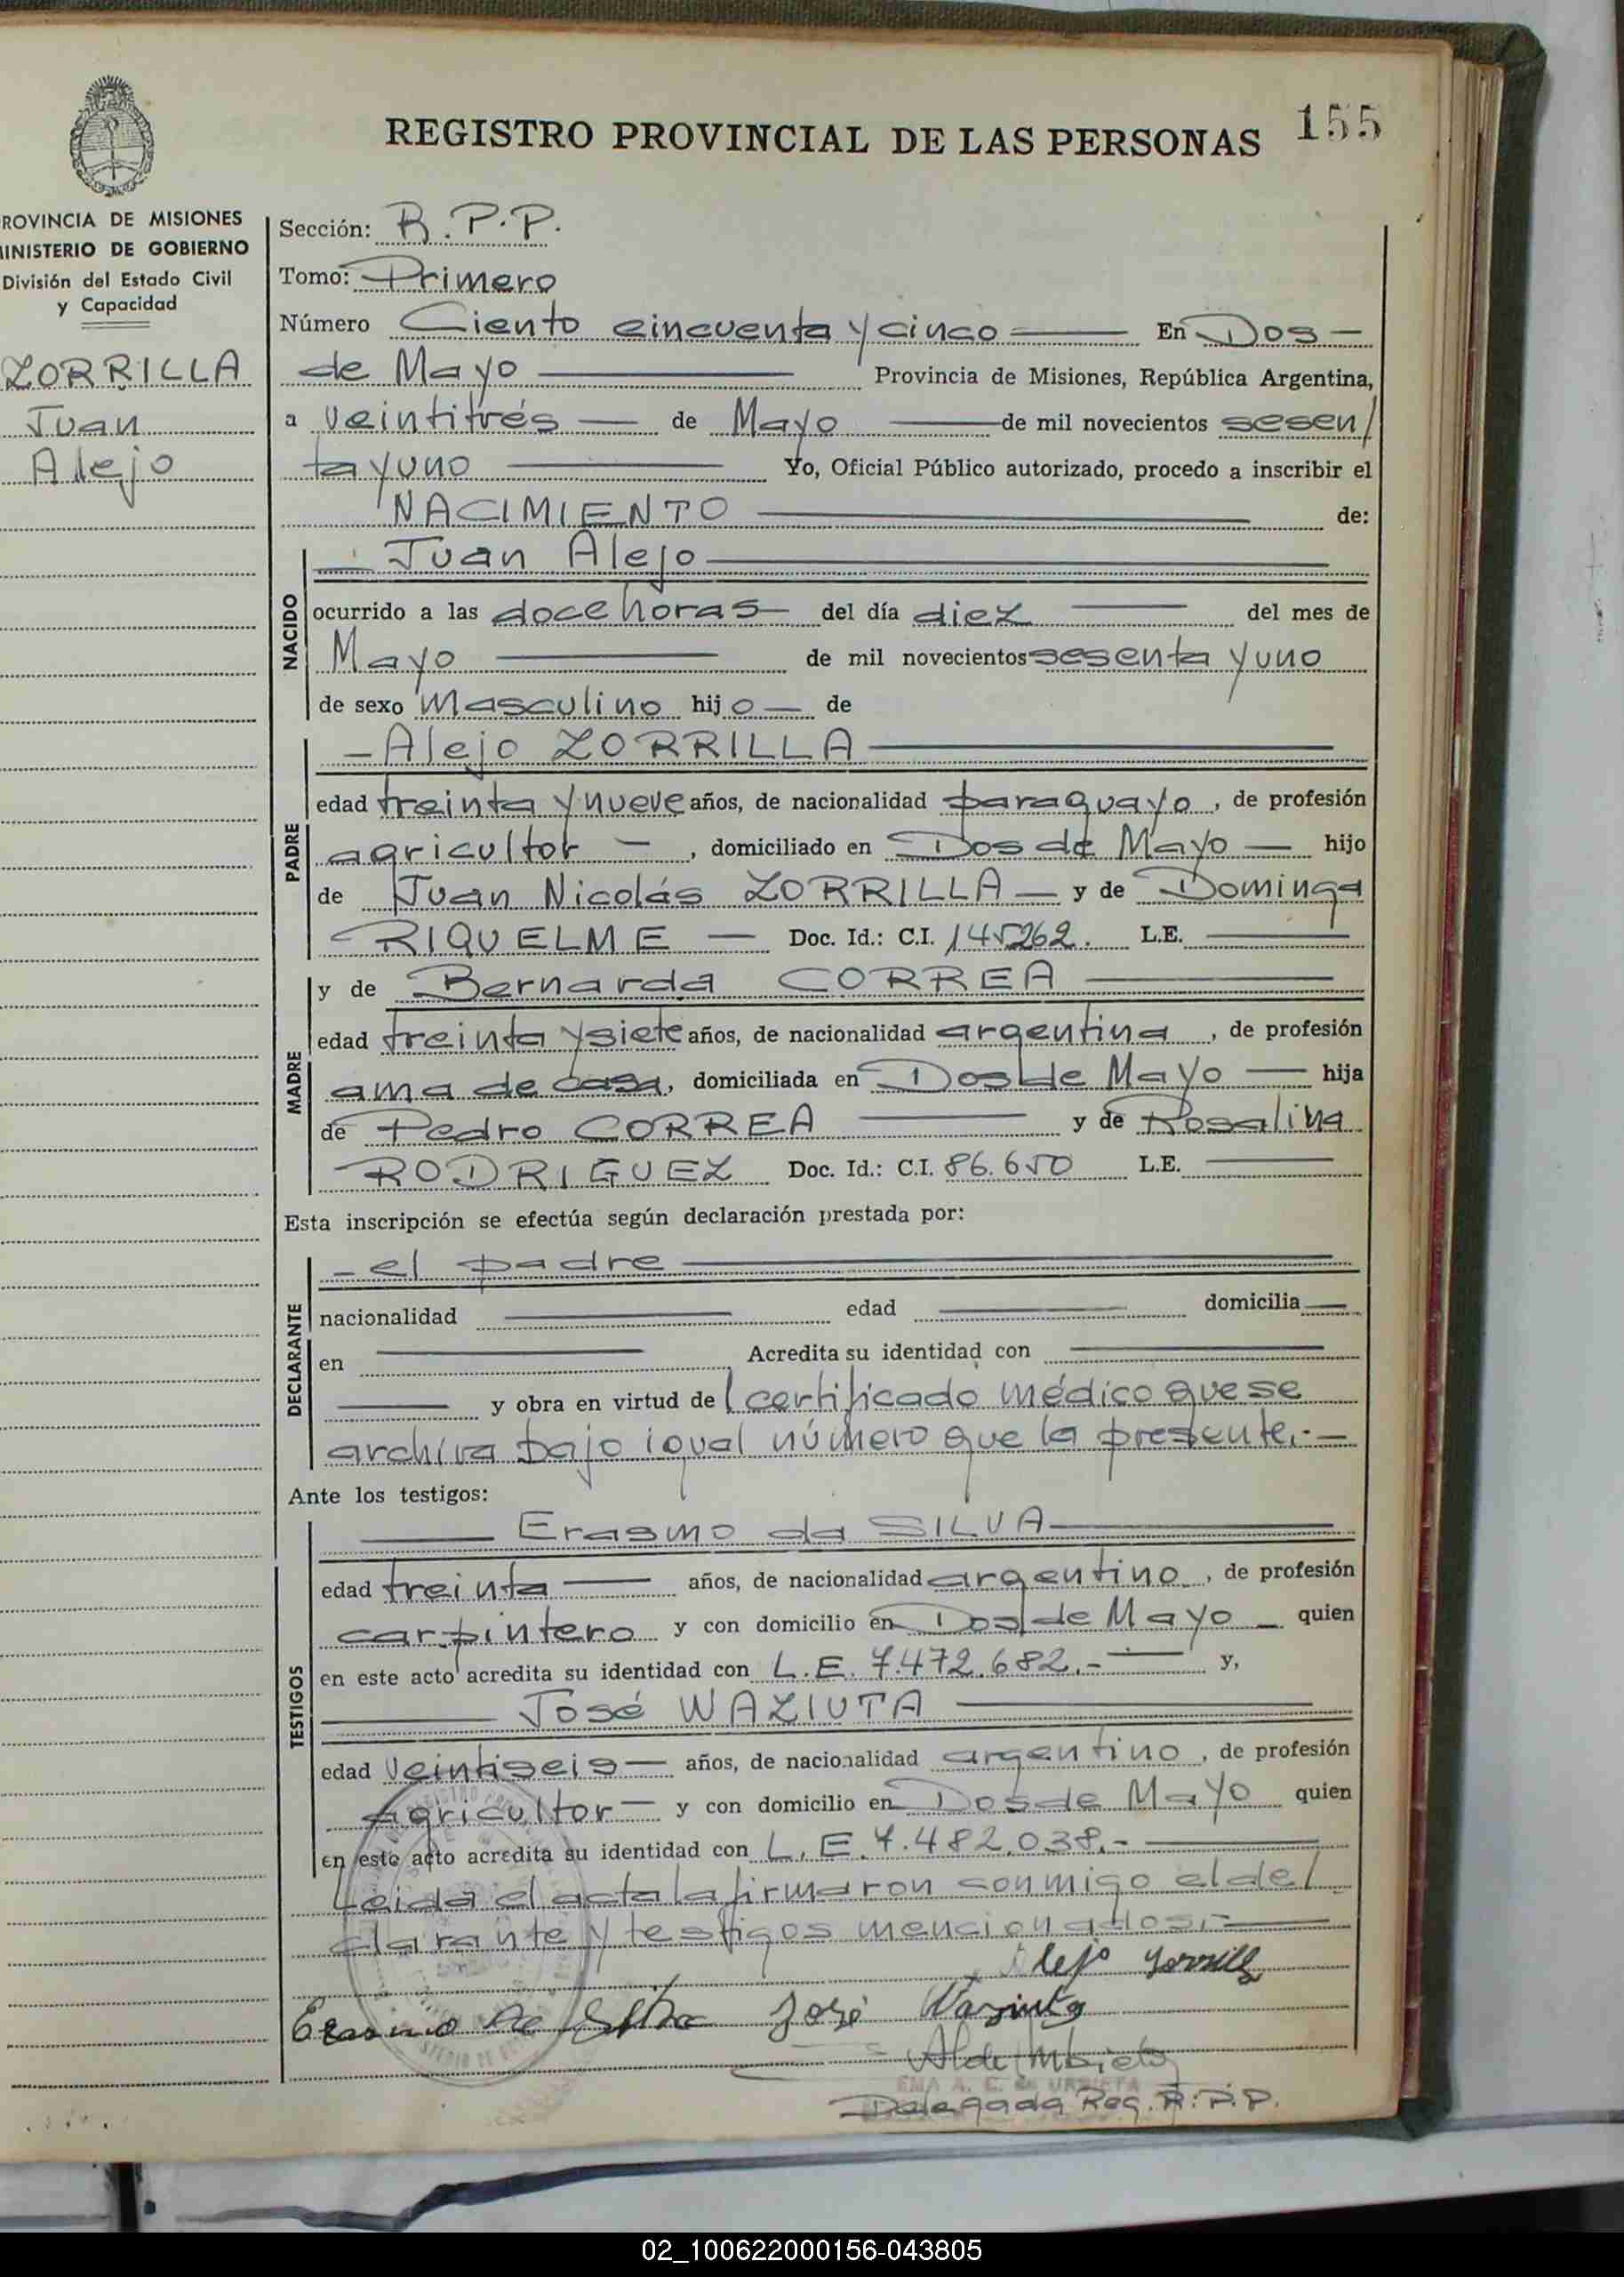 155
REGISTRO PROVINCIAL DE LAS PERSONAS
ROVINCIA DE MISIONES
INISTERIO DE GOBIERNO
División del Estado Civil
y Capacidad
ZORRILLA
Juan
Alejo
Sección: R.P.P.
Tomo: Primero
Número Ciento cincuenta y cinco En Dos
de Mayo Provincia de Misiones, República Argentina,
a veintitrés de Mayo de mil novecientos sesen/
ta y uno Yo, Oficial Público autorizado, procedo a inscribir el
NACIMIENTO de:
NACIDO
Juan Alejo
ocurrido a las doce horas del día diez del mes de
Mayo de mil novecientos sesenta y uno
de sexo masculino hijo de
PADRE
Alejo ZORRILLA
edad treinta y nueve años, de nacionalidad paraguayo, de profesión
agricultor, domiciliado en Dos de Mayo hijo
de Juan Nicolás ZORRILLA y de Dominga
RIQUELME Doc. Id.: C.I. 145262. L.E.
MADRE
y de Bernarda CORREA
edad treinta y siete años, de nacionalidad argentina, de profesión
ama de casa, domiciliada en Dos de Mayo hija
de Pedro CORREA y de Rosalina
RODRIGUEZ Doc. Id.: C.I. 86.650 L.E.
Esta inscripción se efectúa según declaración prestada por:
DECLARANTE
el padre
nacionalidad edad domicilia
en Acredita su identidad con
y obra en virtud de l certificado médico que se
archiva bajo igual número que la presente.-
Ante los testigos:
TESTIGOS
Erasmo da SILVA
edad treinta años, de nacionalidad argentino, de profesión
carpintero y con domicilio en Dos de Mayo quien
en este acto acredita su identidad con L.E. 7.472.682.- y,
José WAZIUTA
edad veintiseis años, de nacionalidad argentino, de profesión
agricultor y con domicilio en Dos de Mayo quien
en este acto acredita su identidad con L.E. 7.482.038.-
Leida el acta la firmaron conmigo el de/
clarante y testigos mencionados.-
Alejo Zorrilla
Erasmo da Silva José Waziuta
Delegada Reg. R.P.P.
02_100622000156-043805